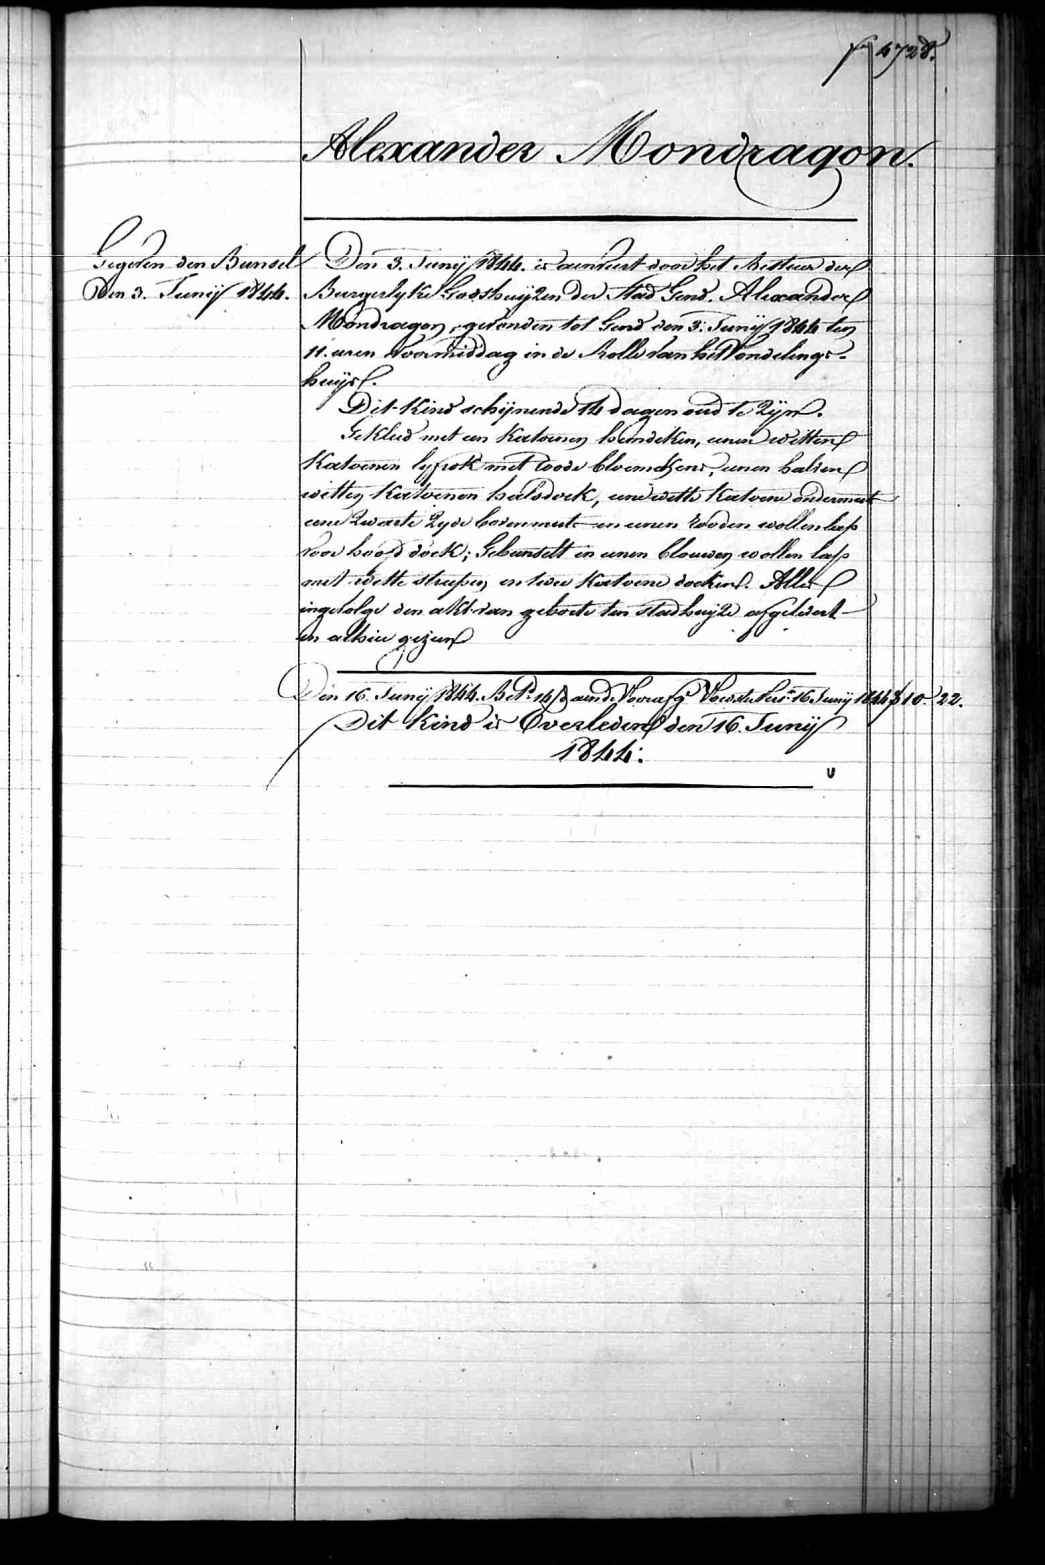 f° 4728.
Alexander Mondragon.
Gegeven den Bunsel
Den 3. Junij 1844.
Den 3. Junij 1844. is aenveert door het Bestuer der
Burgerlyke Godshuijzen der Stad Gend. Alexander
Mondragon, gevonden tot Gend den 3. Junij 1844 ten
11. uren voormiddag in de Rolle van het Vondelings-
huijs.
Dit kind schijnende 14 dagen oud te zijn.
Gekleed met een katoenen hemdeken, eenen witten
katoenen lyfrok met roode bloemekens, eenen halven
witten katoenen halsdoek, eene witte katoene ondermuts
eene zwarte zyde bovenmuts en eenen rooden wollen lap
voor hoofd doek; Gebunselt in eenen blouwen wollen lap
met witte strepen en twee katoene doeken. Alles
ingevolge den akt van geboorte ten stadhuijze afgeleverd
en alhier gezien
Den 16. Junij 1844. 14 16 Junij 1844 10. 22.
Dit kind is Overleden den 16. Junij
1844.